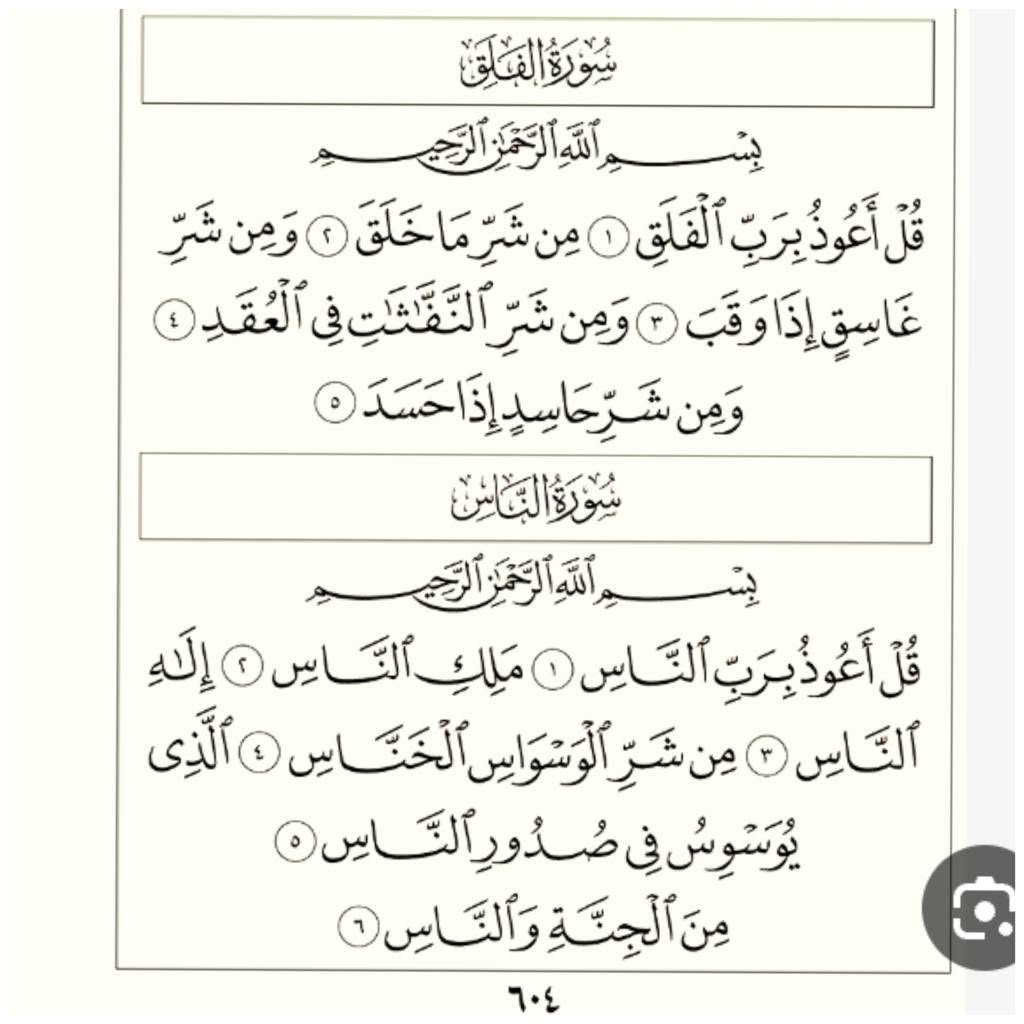 سُورَةُ الْفَلَقِ
بِسْمِ ٱللَّهِ ٱلرَّحْمَٰنِ ٱلرَّحِيمِ
قُلْ أَعُوذُ بِرَبِّ ٱلْفَلَقِ ١ مِن شَرِّ مَا خَلَقَ ٢ وَمِن شَرِّ
غَاسِقٍ إِذَا وَقَبَ ٣ وَمِن شَرِّ ٱلنَّفَّٰثَٰتِ فِى ٱلْعُقَدِ ٤
وَمِن شَرِّ حَاسِدٍ إِذَا حَسَدَ ٥
سُورَةُ النَّاسِ
بِسْمِ ٱللَّهِ ٱلرَّحْمَٰنِ ٱلرَّحِيمِ
قُلْ أَعُوذُ بِرَبِّ ٱلنَّاسِ ١ مَلِكِ ٱلنَّاسِ ٢ إِلَٰهِ
ٱلنَّاسِ ٣ مِن شَرِّ ٱلْوَسْوَاسِ ٱلْخَنَّاسِ ٤ ٱلَّذِى
يُوَسْوِسُ فِى صُدُورِ ٱلنَّاسِ ٥
مِنَ ٱلْجِنَّةِ وَٱلنَّاسِ ٦
٦٠٤